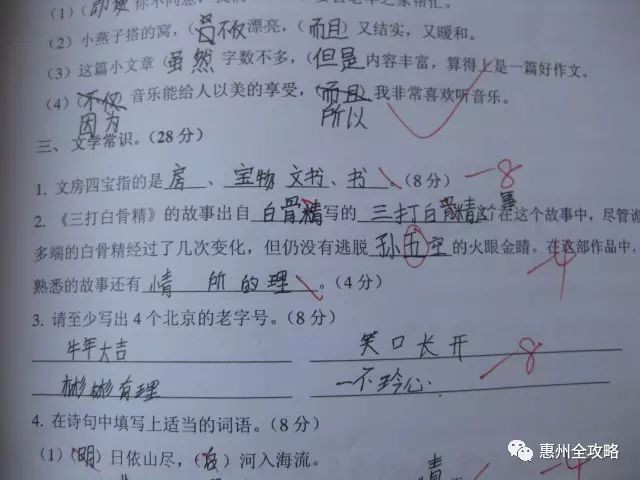 (2) 小燕子搭的窝，(不仅漂亮，(而且) 又结实，又暖和。
(3) 这篇小文章 (虽然 字数不多，(但是 内容丰富，算得上是一篇好作文。
(4) (不仅 音乐能给人以美的享受，(而且 我非常喜欢听音乐。
因为 所以
三、文学常识。(28 分)
1. 文房四宝指的是 房 、宝物 文书、书 。(8 分) -8
2. 《三打白骨精》的故事出自 白骨精 写的 三打白骨精 这个 在这个故事中，尽管
多端的白骨精经过了几次变化，但仍没有逃脱 孙 空 的火眼金睛。在这部作品中，
熟悉的故事还有 情 所 的 理 。(4 分) -4
3. 请至少写出 4 个北京的老字号。(8 分)
牛年大吉 笑口长开
彬彬有理 一不 心 -8
4. 在诗句中填写上适当的词语。(8 分)
(1) (明) 日依山尽，( ) 河入海流。
惠州全攻略